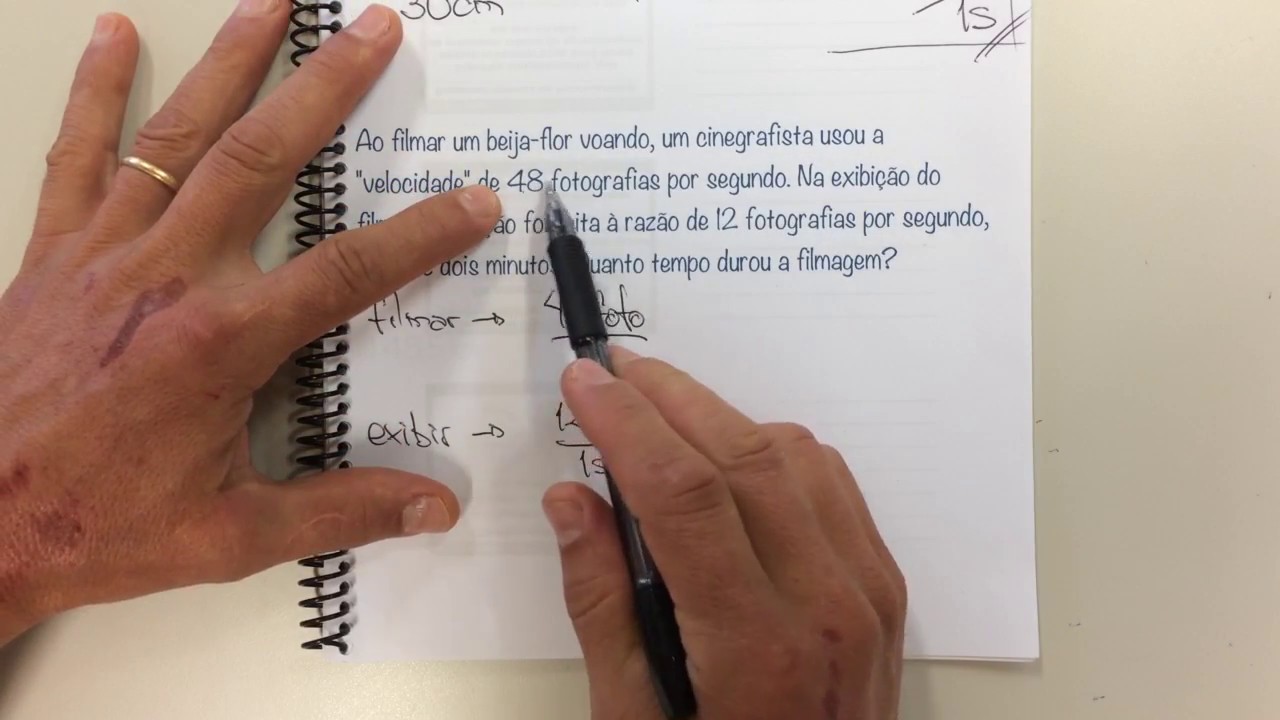 30cm
1s
Ao filmar um beija-flor voando, um cinegrafista usou a
"velocidade" de 48 fotografias por segundo. Na exibição do
à razão de 12 fotografias por segundo,
dois tempo durou a filmagem?
filmar →
exibir →